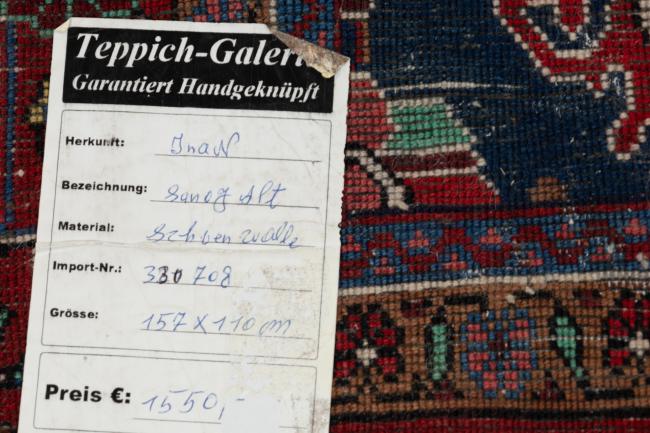 Teppich-Galeri
Garantiert Handgeknüpft
Herkunft: Iran
Bezeichnung: Saroq Alt
Material: Schoenwolle
Import-Nr.: 330708
Grösse: 157 X 110 cm
Preis €: 1550,-